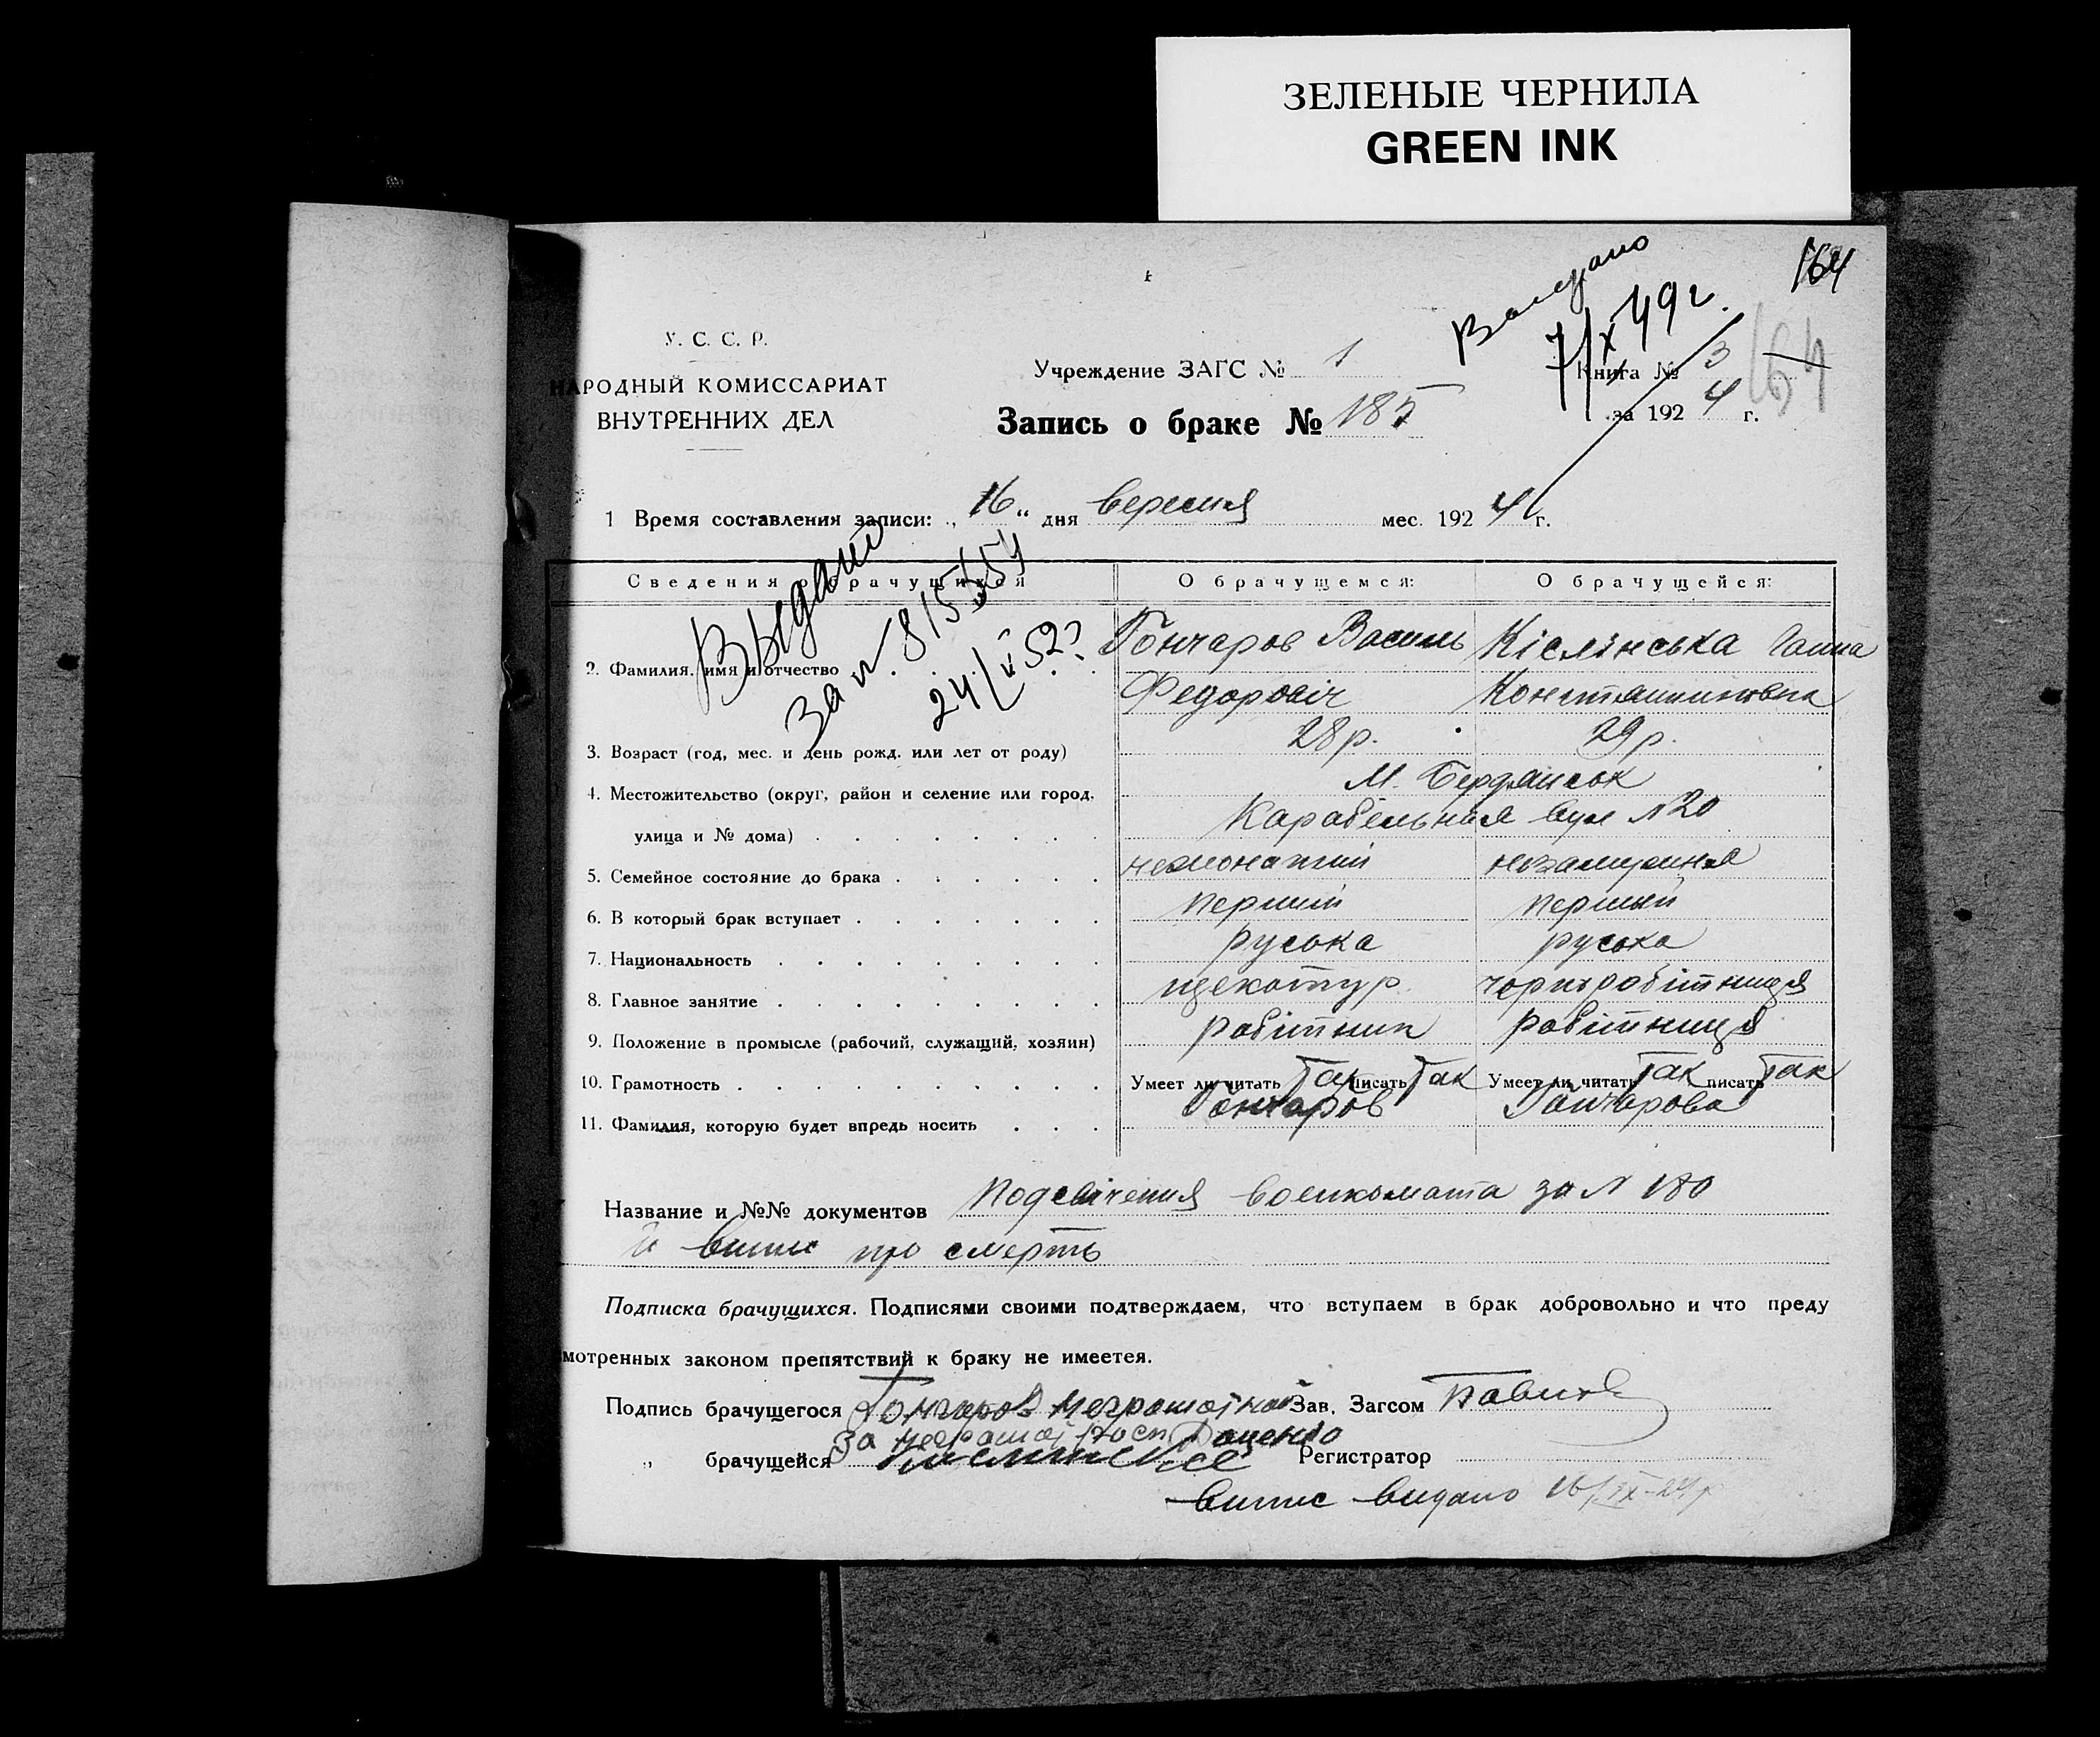 ЗЕЛЕНЫЕ ЧЕРНИЛА
GREEN INK
164
Видано
7/X 49 г.
164
У. С. С. Р.
НАРОДНЫЙ КОМИССАРИАТ
ВНУТРЕННИХ ДЕЛ
Учреждение ЗАГС № 1
Книга № 3
за 192 4 г.
Запись о браке № 185
1 Время составления записи: „ 16 “ дня вересня мес. 192 4 г.
Сведения о брачущихся О брачущемся: О брачущейся:
Выдано
за №
2. Фамилия, имя и отчество Гончаров Василь Кіслінська Ганна
Федоровіч Константиновна
3. Возраст (год, мес. и день рожд. или лет от роду) 28 р. 29 р.
4. Местожительство (округ, район и селение или город, М. Бердянськ
улица и № дома) Карабельная вул №20
5. Семейное состояние до брака нежонатий незамужня
6. В который брак вступает перший перший
7. Национальность руська руська
8. Главное занятие щекатур. чорнробітниця
9. Положение в промысле (рабочий, служащий, хозяин) робітник робітниця
10. Грамотность Умеет ли читать Так писать Так Умеет ли читать Так писать Так
11. Фамилия, которую будет впредь носить Гончаров Гончарова
Название и №№ документов Подсвічення военкомата за №180
й випис про смерть
Подписка брачущихся. Подписями своими подтверждаем, что вступаем в брак добровольно и что преду
мотренных законом препятствий к браку не имеется.
Подпись брачущегося Гончаров Зав. Загсом
За
„ брачущейся Регистратор
випис видано 16/IX-24 р